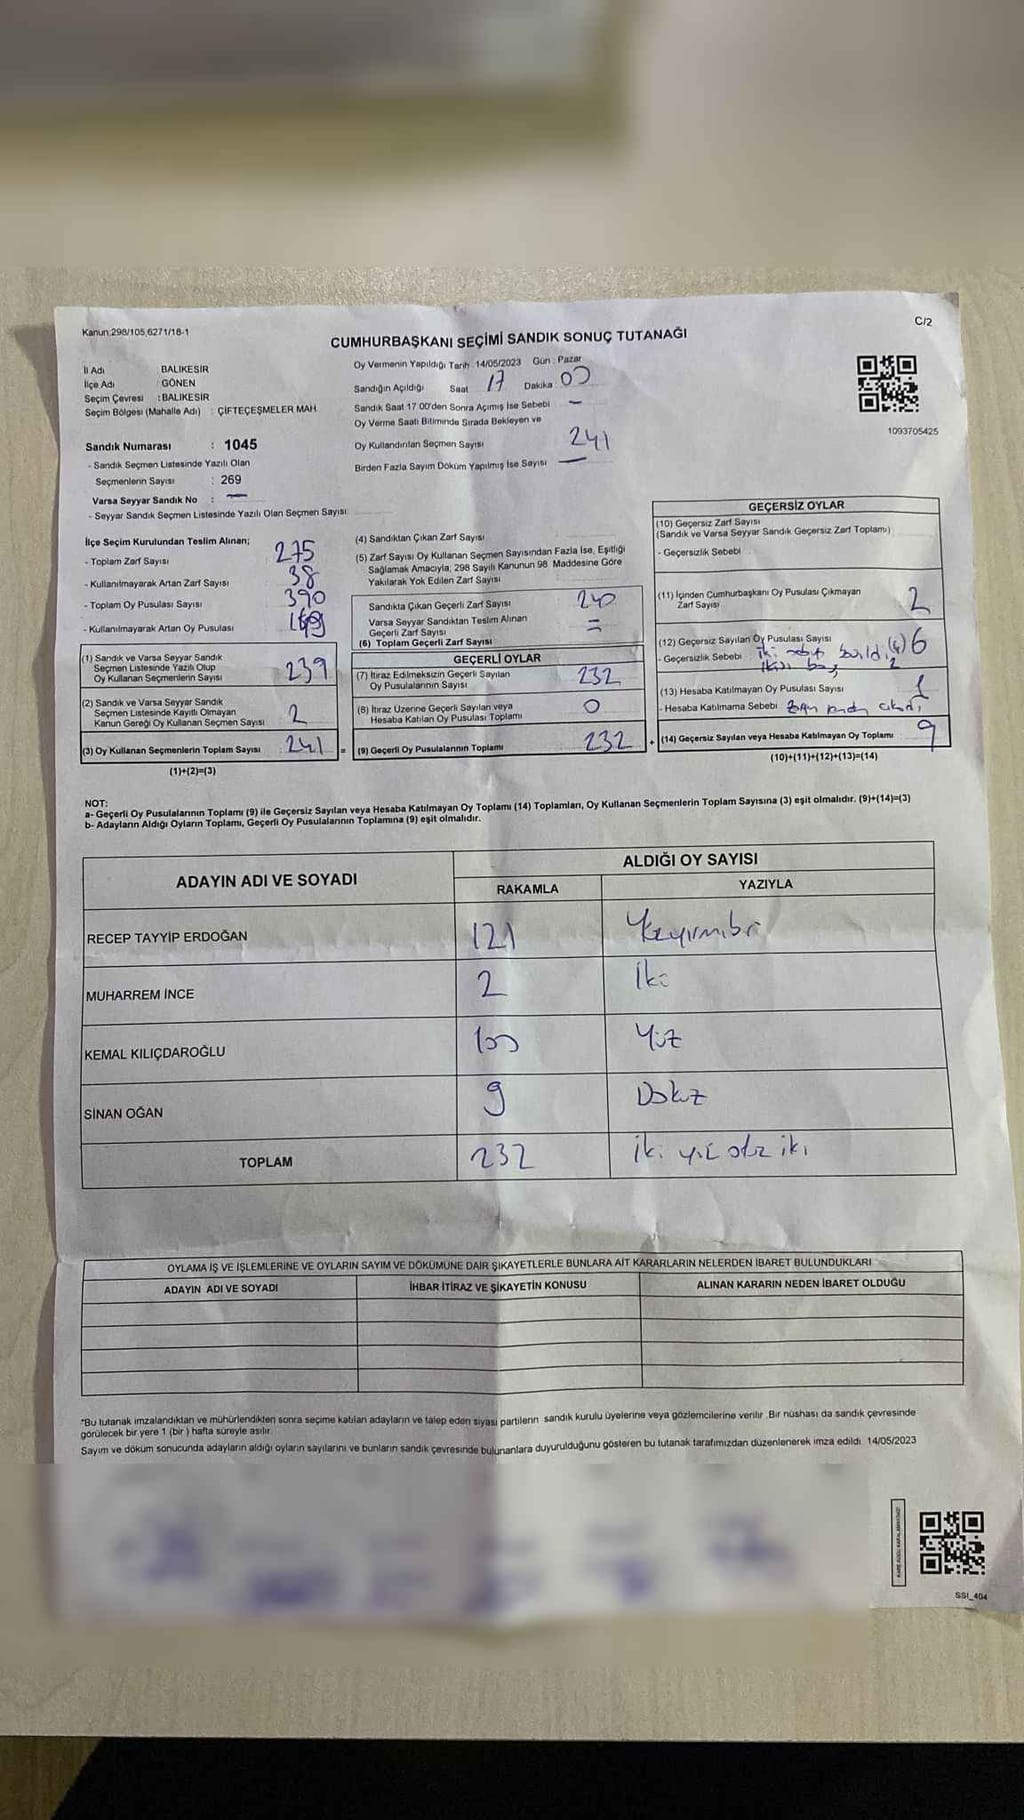 Kanun:298/105,6271/18-1
C/2
CUMHURBAŞKANI SEÇİMİ SANDIK SONUÇ TUTANAĞI
İl Adı BALIKESİR
İlçe Adı : GÖNEN
Seçim Çevresi : BALIKESİR
Seçim Bölgesi (Mahalle Adı) : ÇİFTEÇEŞMELER MAH.
Oy Vermenin Yapıldığı Tarih 14/05/2023 Gün : Pazar
Sandığın Açıldığı Saat 17 Dakika 00
Sandık Saat 17 00'den Sonra Açımış İse Sebebi —
Oy Verme Saati Bitiminde Sırada Bekleyen ve
Oy Kullandırılan Seçmen Sayısı 241
Birden Fazla Sayım Döküm Yapılmış İse Sayısı —
1093705425
Sandık Numarası : 1045
- Sandık Seçmen Listesinde Yazılı Olan
Seçmenlerin Sayısı : 269
Varsa Seyyar Sandık No : —
- Seyyar Sandık Seçmen Listesinde Yazılı Olan Seçmen Sayısı
İlçe Seçim Kurulundan Teslim Alınan;
- Toplam Zarf Sayısı 275
- Kullanılmayarak Artan Zarf Sayısı 38
- Toplam Oy Pusulası Sayısı 390
- Kullanılmayarak Artan Oy Pusulası
(1) Sandık ve Varsa Seyyar Sandık
Seçmen Listesinde Yazılı Olup
Oy Kullanan Seçmenlerin Sayısı 239
(2) Sandık ve Varsa Seyyar Sandık
Seçmen Listesinde Kayıtlı Olmayan
Kanun Gereği Oy Kullanan Seçmen Sayısı 2
(3) Oy Kullanan Seçmenlerin Toplam Sayısı 241 =
(1)+(2)=(3)
(4) Sandıktan Çıkan Zarf Sayısı
(5) Zarf Sayısı Oy Kullanan Seçmen Sayısından Fazla İse, Eşitliği
Sağlamak Amacıyla, 298 Sayılı Kanunun 98 Maddesine Göre
Yakılarak Yok Edilen Zarf Sayısı
Sandıkta Çıkan Geçerli Zarf Sayısı 240
Varsa Seyyar Sandıktan Teslim Alınan
Geçerli Zarf Sayısı =
(6) Toplam Geçerli Zarf Sayısı
GEÇERLİ OYLAR
(7) İtiraz Edilmeksizin Geçerli Sayılan
Oy Pusulalarının Sayısı 232
(8) İtiraz Üzerine Geçerli Sayılan veya
Hesaba Katılan Oy Pusulası Toplamı 0
(9) Geçerli Oy Pusulalarının Toplamı 232 +
GEÇERSİZ OYLAR
(10) Geçersiz Zarf Sayısı
(Sandık ve Varsa Seyyar Sandık Geçersiz Zarf Toplamı)
- Geçersizlik Sebebi
(11) İçinden Cumhurbaşkanı Oy Pusulası Çıkmayan
Zarf Sayısı 2
(12) Geçersiz Sayılan Oy Pusulası Sayısı (4) 6
- Geçersizlik Sebebi iki
ikisi boş 2
(13) Hesaba Katılmayan Oy Pusulası Sayısı 1
- Hesaba Katılmama Sebebi
(14) Geçersiz Sayılan veya Hesaba Katılmayan Oy Toplamı 9
(10)+(11)+(12)+(13)=(14)
NOT:
a- Geçerli Oy Pusulalarının Toplamı (9) ile Geçersiz Sayılan veya Hesaba Katılmayan Oy Toplamı (14) Toplamları, Oy Kullanan Seçmenlerin Toplam Sayısına (3) eşit olmalıdır. (9)+(14)=(3)
b- Adayların Aldığı Oyların Toplamı, Geçerli Oy Pusulalarının Toplamına (9) eşit olmalıdır.
ADAYIN ADI VE SOYADI ALDIĞI OY SAYISI
RAKAMLA YAZIYLA
RECEP TAYYİP ERDOĞAN 121
MUHARREM İNCE 2 İki
KEMAL KILIÇDAROĞLU 100 Yüz
SİNAN OĞAN 9 Dokuz
TOPLAM 232 İki yüz otuz iki
OYLAMA İŞ VE İŞLEMLERİNE VE OYLARIN SAYIM VE DÖKÜMÜNE DAİR ŞİKAYETLERLE BUNLARA AİT KARARLARIN NELERDEN İBARET BULUNDUKLARI
ADAYIN ADI VE SOYADI İHBAR İTİRAZ VE ŞİKAYETİN KONUSU ALINAN KARARIN NEDEN İBARET OLDUĞU
*Bu tutanak imzalandıktan ve mühürlendikten sonra seçime katılan adayların ve talep eden siyasi partilerin sandık kurulu üyelerine veya gözlemcilerine verilir. Bir nüshası da sandık çevresinde
görülecek bir yere 1 (bir ) hafta süreyle asılır.
Sayım ve döküm sonucunda adayların aldığı oyların sayılarını ve bunların sandık çevresinde bulunanlara duyurulduğunu gösteren bu tutanak tarafımızdan düzenlenerek imza edildi. 14/05/2023
SSI_404